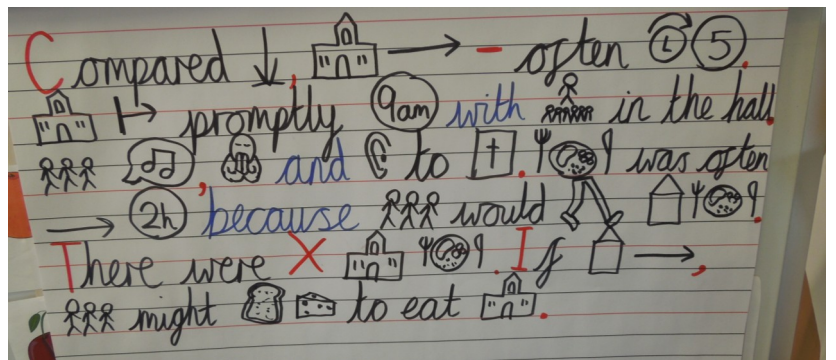 Compared , - often L 5.
promptly 9am with in the hall
, and to . was often
2h because would .
There were X . If ,
might to eat .